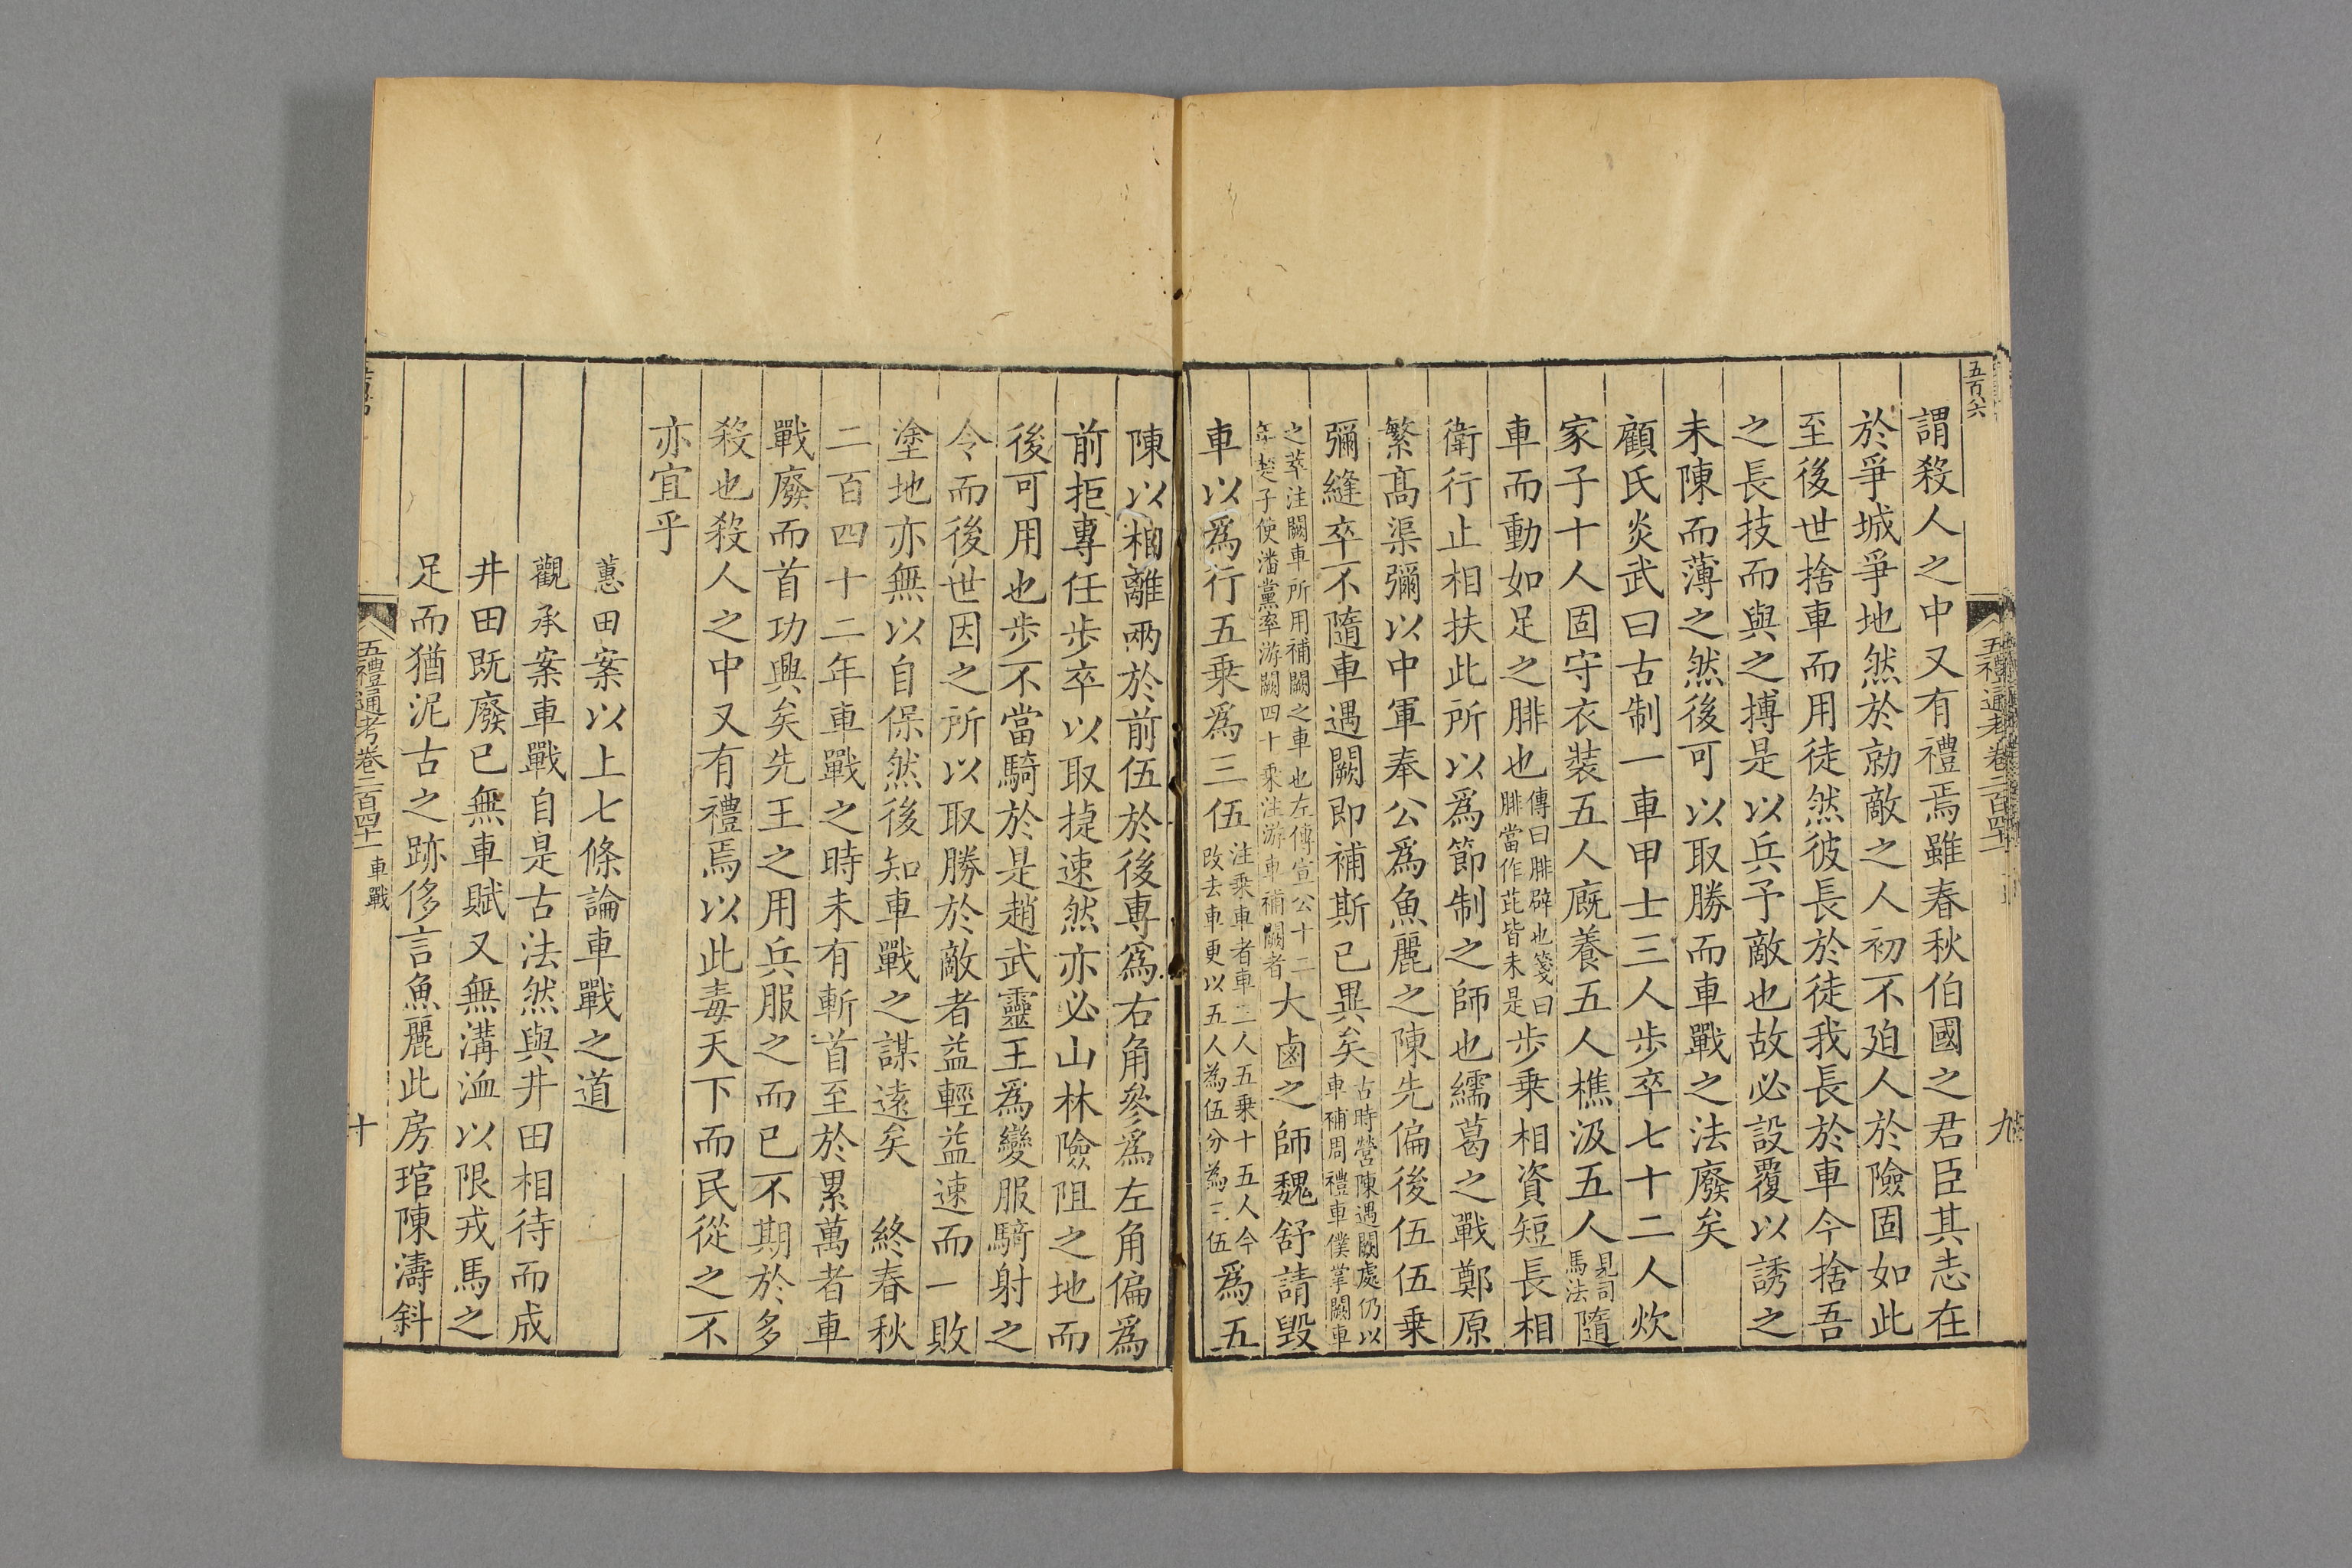 五百六
五禮通考卷二百四十一
九
謂殺人之中又有禮焉雖春秋伯國之君臣其志在
於爭城爭地然於勍敵之人初不廹人於險固如此
至後世捨車而用徒然彼長於徒我長於車今捨吾
之長技而與之搏是以兵予敵也故必設覆以誘之
未陳而薄之然後可以取勝而車戰之法廢矣
顧氏炎武曰古制一車甲士三人步卒七十二人炊
家子十人固守衣裝五人廐養五人樵汲五人見司馬法隨
車而動如足之腓也傳曰腓辟也箋曰腓當作芘皆未是步乗相資短長相
衛行止相扶此所以爲節制之師也繻葛之戰鄭原
繁髙渠彌以中軍奉公爲魚麗之陳先偏後伍伍乗
彌縫卒不隨車遇闕即補斯已異矣古時營陳遇闕處仍以車補周禮車僕掌闕車
之萃注闕車所用補闕之車也左傳宣公十二年楚子使潘黨率游闕四十乘注游車補闕者大鹵之師魏舒請毀
車以爲行五乗爲三伍注乗車者車三人五乗十五人今改去車更以五人為伍分為三伍爲五
陳以相離兩於前伍於後專爲右角參爲左角偏爲
前拒專任步卒以取捷速然亦必山林險阻之地而
後可用也步不當騎於是趙武靈王爲變服騎射之
令而後世因之所以取勝於敵者益輕益速而一敗
塗地亦無以自保然後知車戰之謀遠矣　終春秋
二百四十二年車戰之時未有斬首至於累萬者車
戰廢而首功興矣先王之用兵服之而已不期於多
殺也殺人之中又有禮焉以此毒天下而民從之不
亦宜乎
蕙田案以上七條論車戰之道
觀承案車戰自是古法然與井田相待而成
井田既廢已無車賦又無溝洫以限戎馬之
足而猶泥古之跡侈言魚麗此房琯陳濤斜
五禮通考卷二百四十一　車戰
十